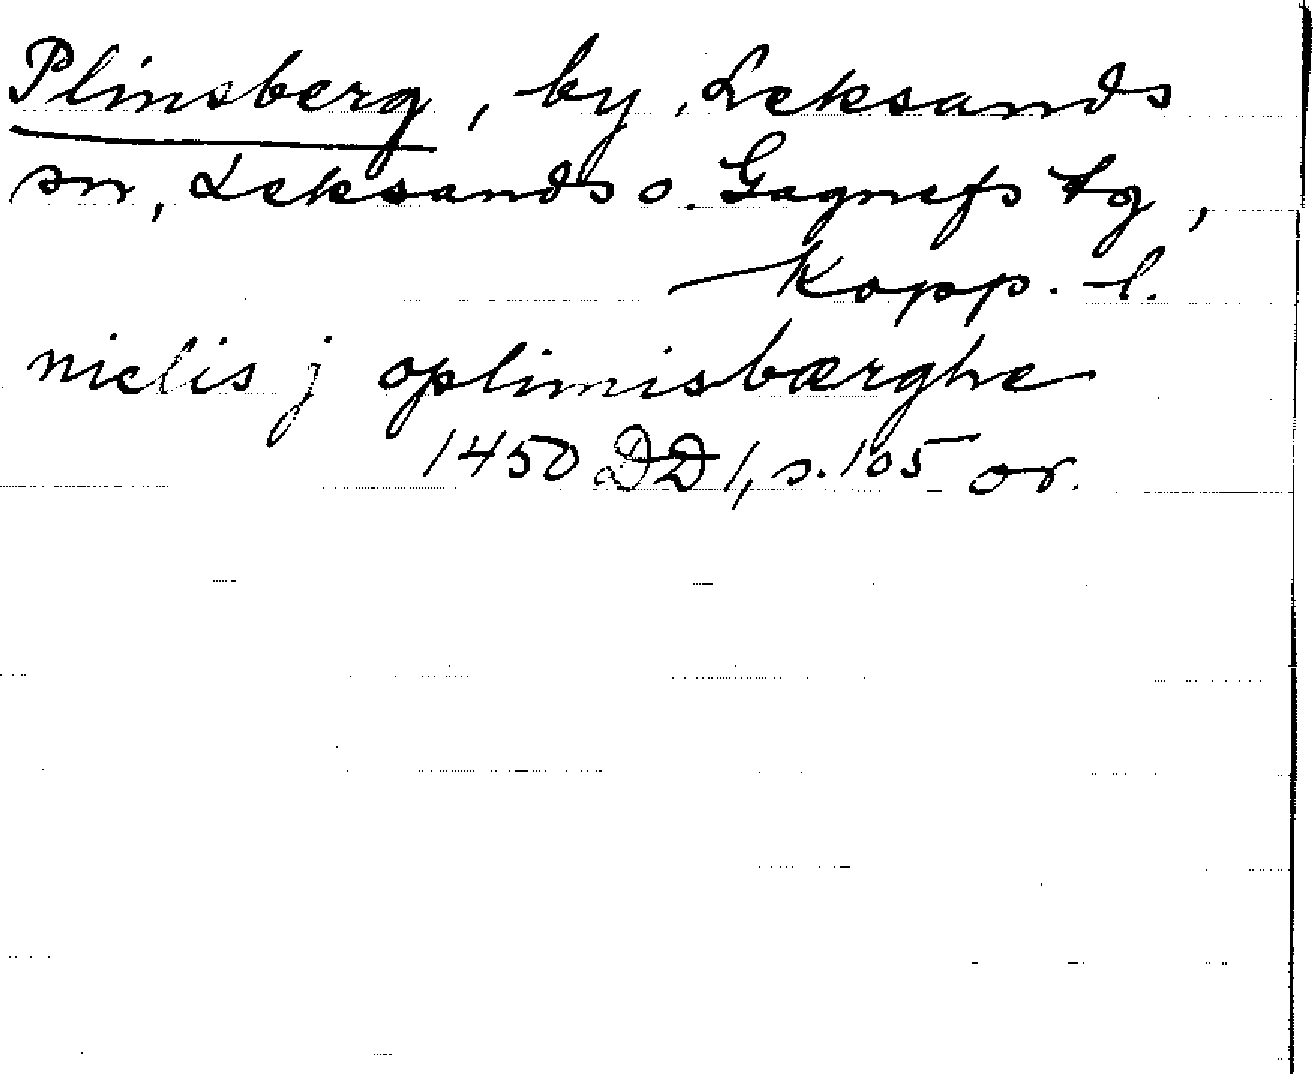 Plinsberg, by, Leksands
sn, Leksands o. Gagnefs tg,
Kopp. l.
nielis j oplimisbærghe
1450 DD 1, s. 105 or.